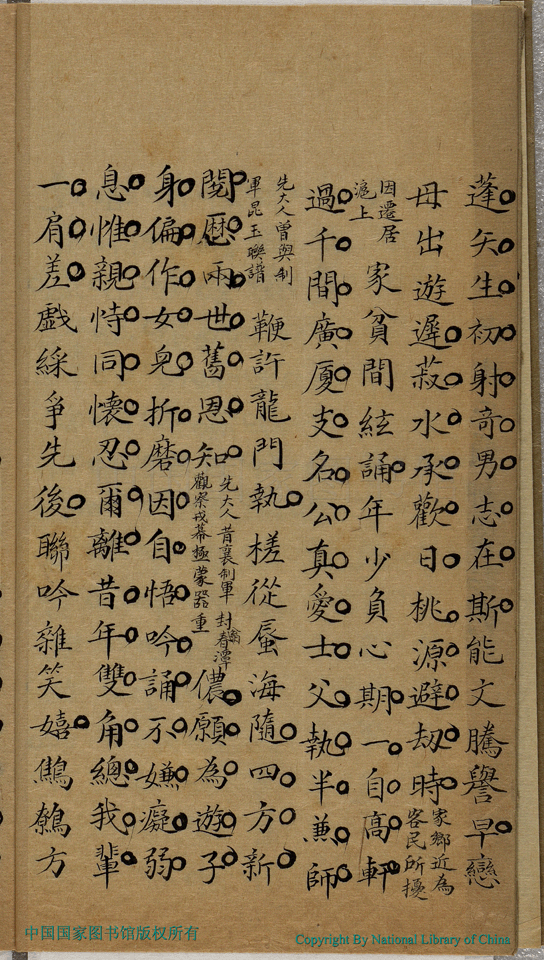 蓬矢生初射奇男志在斯能文騰譽早戀
母出遊遲菽水承歡日桃源避劫時家鄉近為客民所擾
因遷居滬上家貧間絃誦年少負心期一自高軒
過千間廣廈支名公真愛士父執半兼師
先大人曾與制軍昆玉聯譜鞭許龍門執槎從蜃海隨四方新
閱歷兩世舊恩知先大人昔襄制軍封翁春潭觀察戎幕極蒙器重儂願為遊子
身偏作女兒折磨因自悟吟誦不嫌癡弱
息惟親恃同懷忍爾離昔年雙角總我輩
一肩差戲綵爭先後聯吟雜笑嬉鷦鷯方
中国国家图书馆版权所有
Copyright By National Library of China